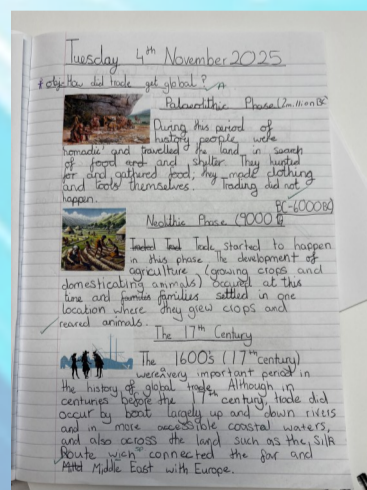 Tuesday 4th November 2025
* obj: How did trade get global?
Palaeolithic Phase (2million BC
During this period of
history people were
nomadic and travelled the land in search
of food and and shelter. They hunted
for and gathered food; they made clothing
and tools themselves. Trading did not
happen.
BC-6000BC)
Neolithic Phase (9000
Traded Trad Trade started to happen
in this phase The development of
agriculture (growing crops and
domesticating animals) occured at this
time and families families settled in one
location where they grew crops and
reared animals.
The 17th Century
The 1600's (17th century)
were a very important period in
the history of global trade, Although in
centuries before the 17th century, trade did
occur by boat largely up and down rivers
and in more accessible coastal waters,
and also across the land such as the Silk
Route wich connected the far and
Middle East with Europe.